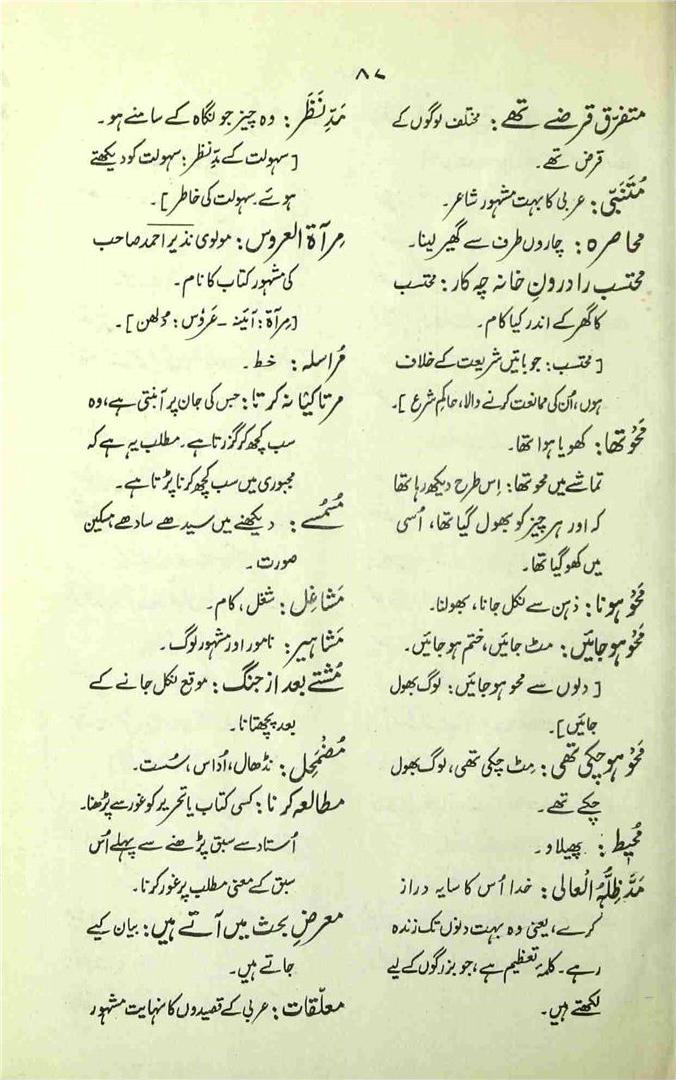 ۸۷
متفرّق قرضے تھے: مختلف لوگوں کے
قرض تھے۔
مُتَنَبّی: عربی کا بہت مشہور شاعر۔
محاصرہ: چاروں طرف سے گھیر لینا۔
محتسب را درونِ خانہ چہ کار: محتسب
کا گھر کے اندر کیا کام۔
[محتسب: جو باتیں شریعت کے خلاف
ہوں، اُن کی ممانعت کرنے والا، حاکمِ شرع]۔
مَحْو تھا: کھویا ہوا تھا۔
تماشے میں محو تھا: اِس طرح دیکھ رہا تھا
کہ اور ہر چیز کو بھول گیا تھا، اُسی
میں کھو گیا تھا۔
مَحْو ہونا: ذہن سے نکل جانا، بھولنا۔
مَحْو ہو جائیں: مٹ جائیں، ختم ہو جائیں۔
[دلوں سے محو ہو جائیں: لوگ بھول
جائیں]۔
مَحْو ہو چکی تھی: مِٹ چکی تھی، لوگ بھول
چکے تھے۔
مُحیط: پھیلاو۔
مَدَّ ظِلُّہُ الْعالی: خدا اُس کا سایہ دراز
کرے، یعنی وہ بہت دنوں تک زندہ
رہے۔ کلمۂ تعظیم ہے، جو بزرگوں کے لیے
لکھتے ہیں۔
مَدِّ نَظَر: وہ چیز جو نگاہ کے سامنے ہو۔
[سہولت کے مدِّ نظر: سہولت کو دیکھتے
ہوئے۔ سہولت کی خاطر]۔
مِرآۃ العروس: مولوی نذیر احمد صاحب
کی مشہور کتاب کا نام۔
[مِرآۃ: آئینہ ـ عَروٗس: دُلھن]۔
مُراسلہ: خط۔
مرتا کیا نہ کرتا: جس کی جان پر آبنتی ہے، وہ
سب کچھ کر گزرتا ہے۔ مطلب یہ ہے کہ
مجبوری میں سب کچھ کرنا پڑتا ہے۔
مُسمُسے: دیکھنے میں سیدھے سادھے مسکین
صورت۔
مَشاغل: شغل، کام۔
مَشاہیر: نامور اور مشہور لوگ۔
مُشتے بعد از جنگ: موقع نکل جانے کے
بعد پچھتانا۔
مُضْمَحِل: نڈھال، اُداس، سُست۔
مطالعہ کرنا: کسی کتاب یا تحریر کو غور سے پڑھنا۔
اُستاد سے سبق پڑھنے سے پہلے اُس
سبق کے معنی مطلب پر غور کرنا۔
معرضِ بحث میں آتے ہیں: بیان کیے
جاتے ہیں۔
معلّقات: عربی کے قصیدوں کا نہایت مشہور